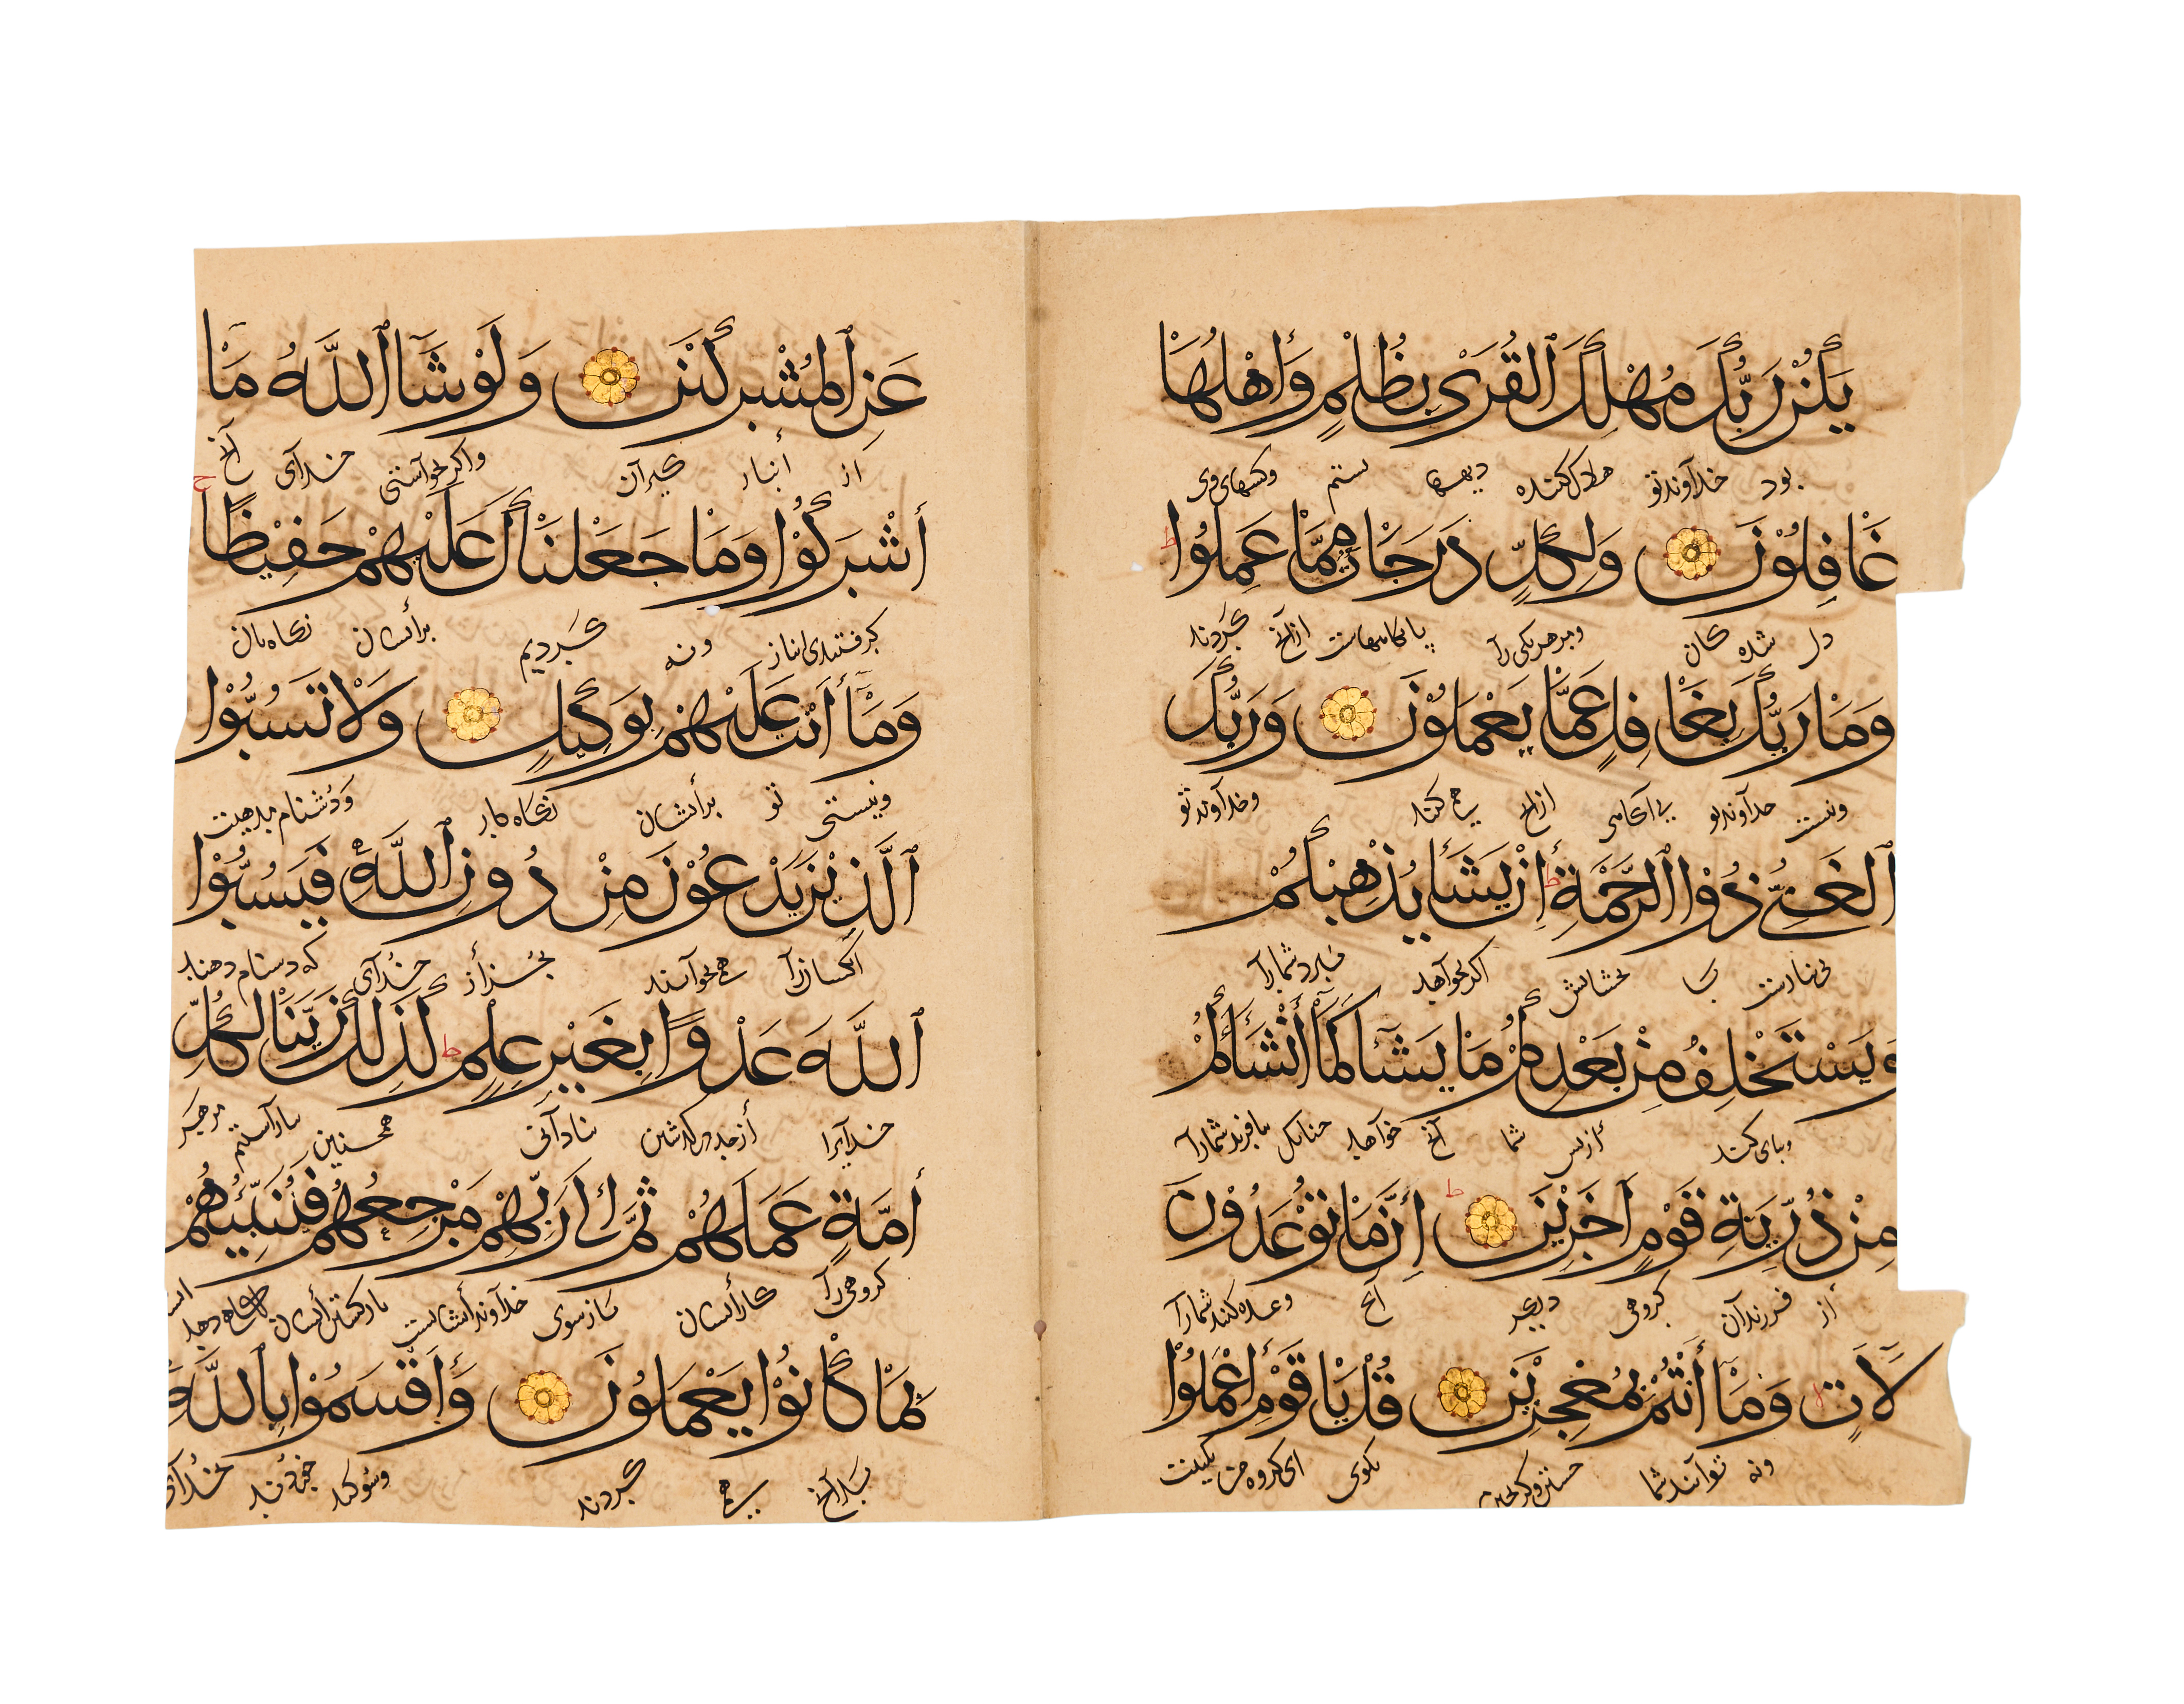 يَكُنْ رَبُّكَ مُهْلِكَ ٱلْقُرَىٰ بِظُلْمٍ وَأَهْلُهَا
بود خدآوند تو هلاک کننده دیهها بستم وکسهای وی
غَافِلُوْنَ وَلِكُلٍّ دَرَجَاتٌ مِمَّا عَمِلُوْا ط
دل شده کان ومرهریکی رآ پایکاههاست ازآنچ کردند
وَمَا رَبُّكَ بِغَافِلٍ عَمَّا يَعْمَلُوْنَ وَرَبُّكَ
ونیست خدآوند تو بی آکاهی ازانچ می کنند وخدآوند تو
ٱلْغَنِيُّ ذُوْا ٱلرَّحْمَةِ ط إِنْ يَشَأْ يُذْهِبْكُمْ
بی نیازست با بخشایش اکر بخوآهد ببرد شمارآ
وَيَسْتَخْلِفْ مِنْ بَعْدِكُمْ مَا يَشَآءُ كَمَآ أَنْشَأَكُمْ
أزپس شما آنچ خوآهد چنانک بیافرید شمارآ
مِنْ ذُرِّيَّةِ قَوْمٍ آخَرِيْنَ ط إِنَّ مَا تُوْعَدُوْنَ
أز فرزندآن کروهی دیکر آنچ وعده کنند شمارآ
لَآتٍ ط وَمَآ أَنْتُمْ بِمُعْجِزِيْنَ قُلْ يَا قَوْمِ اعْمَلُوْا
ونه توآنند شما بکوی ای کروه من بکنیت
عَنِ ٱلْمُشْرِكِيْنَ وَلَوْ شَآءَ ٱللَّهُ مَآ
از أنباز کیرآن واکر خوآستی خدآی آنچ
أَشْرَكُوْا وَمَا جَعَلْنَاكَ عَلَيْهِمْ حَفِيْظًا ج
کرفتندی انباز ونه کردیم برأیشان نکاه بان
وَمَآ أَنْتَ عَلَيْهِمْ بِوَكِيْلٍ وَلَا تَسُبُّوْا
ونیستی تو برأیشان نکاه دار وَدُشنام مدهیت
ٱلَّذِيْنَ يَدْعُوْنَ مِنْ دُوْنِ ٱللَّهِ فَيَسُبُّوْا
آنکسانرآ همی خوآنند بجُز أز خُدآی که دشنام دهند
ٱللَّهَ عَدْوًا بِغَيْرِ عِلْمٍ ط كَذٰلِكَ زَيَّنَّا لِكُلِّ
خدآیرا أز حد درکذشتن نادآنی همچنین بیارآستیم مر هر
أُمَّةٍ عَمَلَهُمْ ثُمَّ إِلَىٰ رَبِّهِمْ مَرْجِعُهُمْ فَيُنَبِّئُهُمْ
کروهی رآ کار أیشان باز سوی خدآوند أیشانست بازکشتن أیشان دهد
بِمَا كَانُوْا يَعْمَلُوْنَ وَأَقْسَمُوْا بِٱللَّهِ
بدآنچ می کردند وسُوکند خوردند بخُدآی